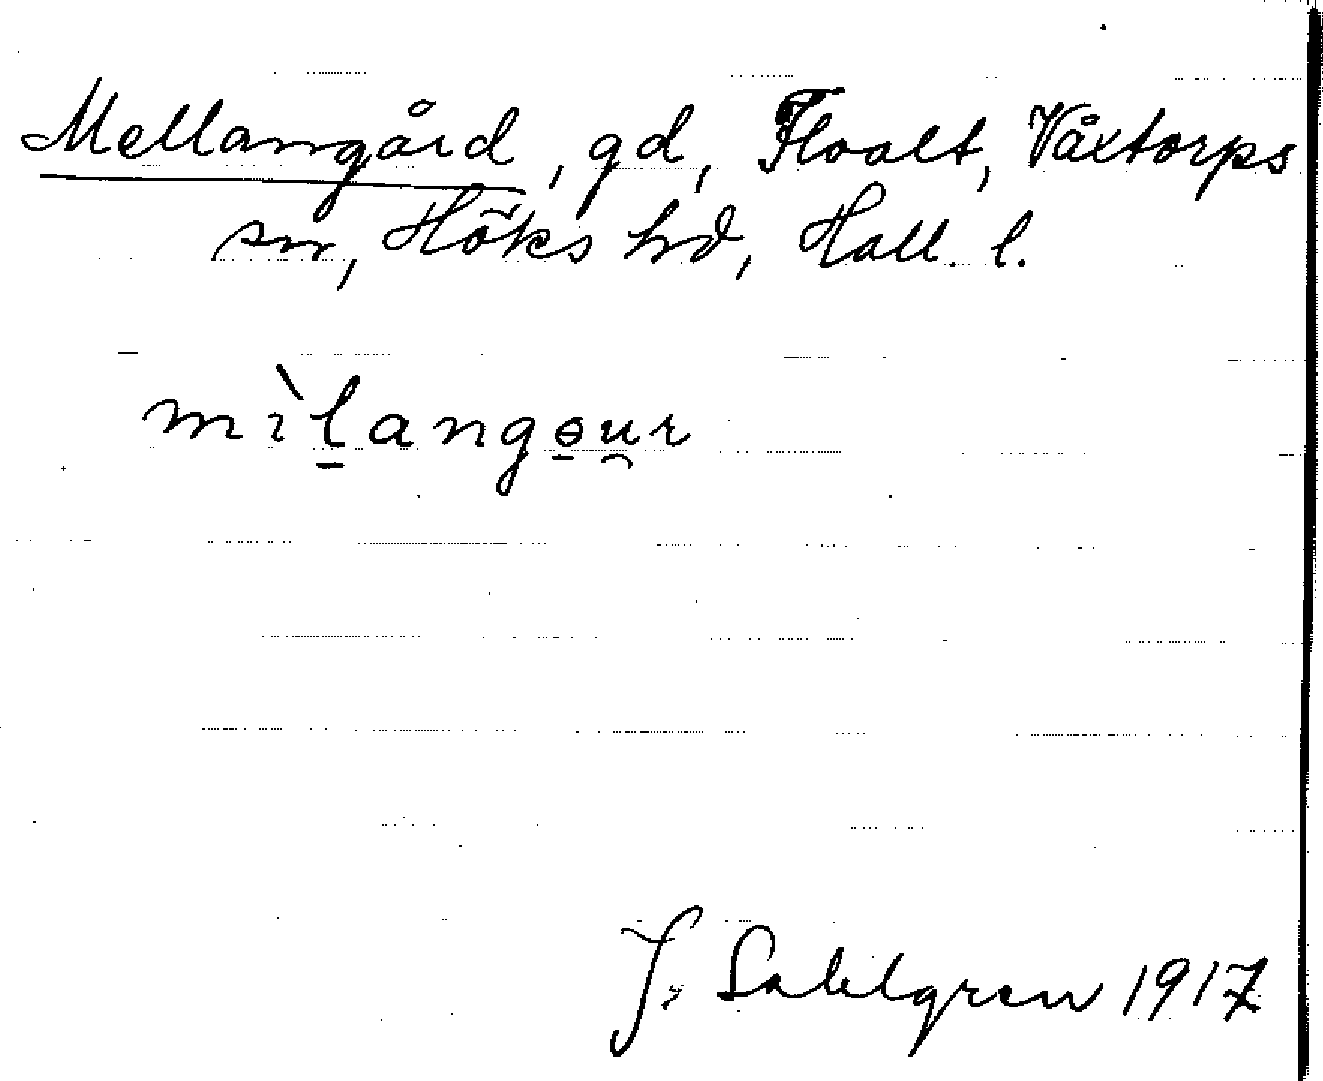 Mellangård, gd, Floalt, Våxtorps
sn, Höks hd, Hall. l.
mìl̠angɵ̠u̯r
J. Sahlgren 1917